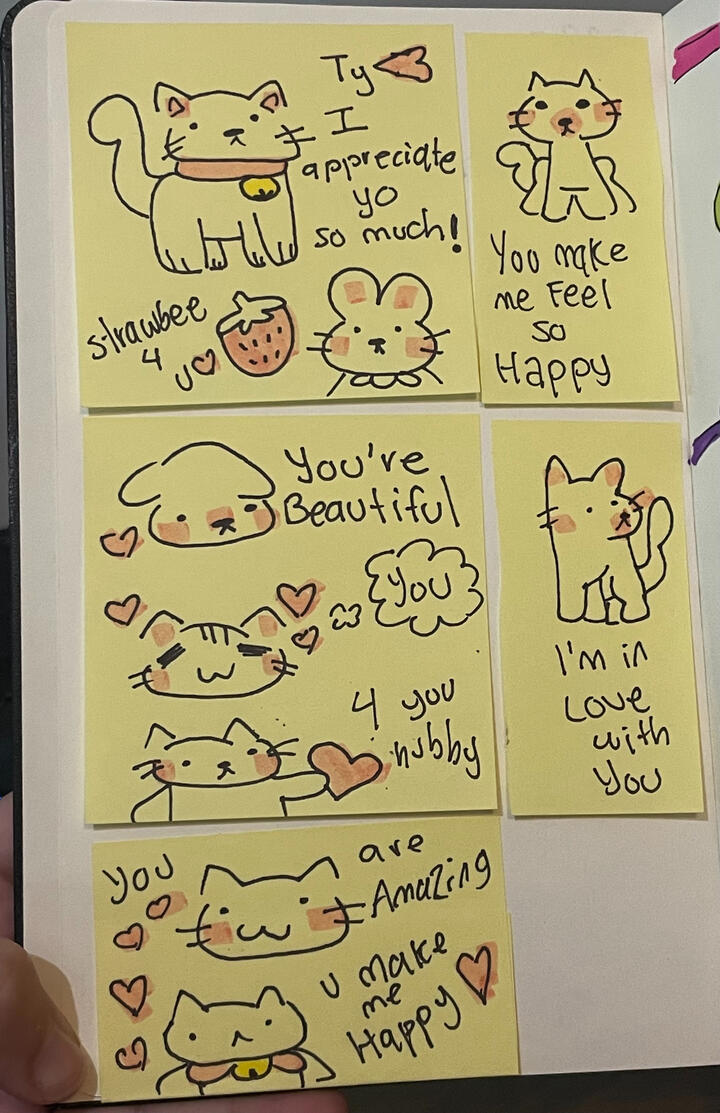 Ty
I
appreciate
yo
so much!
strawbee
4
u
You make
me Feel
so
Happy
You're
Beautiful
You
4 you
hubby
I'm in
Love
with
You
you are
Amazing
u make
me
Happy